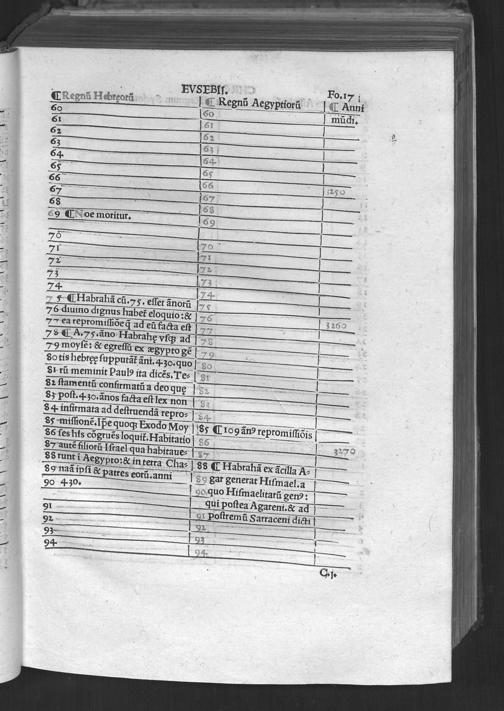 EVSEBII.
Fo.17
¶Regnū Hebreorū
¶ Regnū Aegyptiorū
¶ Anni
mūdi.
60
61
62
63
64
65
66
67
68
69 ¶Noe moritur.
70
71
72
73
74
75 ¶Habrahā cū.75. esset ānorū
76 diuino dignus habet̄ eloquio: &
77 ea repromissiōe q̄ ad eū facta est
78 ¶ A.75. āno Habrahę vsq̨ ad
79 moysē: & egressū ex ægypto gē
80 tis hebręę supputāt̄ āni.430. quo
81 rū meminit Paulꝰ ita dicēs. Te-
82 stamentū confirmatū a deo quę
83 post.430. ānos facta est lex non
84 infirmata ad destruendā repros-
85 missionē. Ipe quoq; Exodo Moy
86 ses his cōgruēs loquit̄. Habitatio
87 autē filiorū Israel qua habitaue-
88 runt i Aegypto: & in terra Cha-
89 naā ipsi & patres eorū. anni
90 430.
91
92
93
94
60
61
62
63
64
65
66
67
68
69
70
71
72
73
74
75
76
77
78
79
80
81
82
83
84
85 ¶ 109 ānꝰ repromissiōis
86
87
88 ¶ Habrahā ex ācilla A-
89 gar generat Hismael. a
90 quo Hismaelitarū genꝰ:
qui postea Agareni. & ad
91 postremū Sarraceni dicti
92
93
94
3250
3260
3270
C.j.